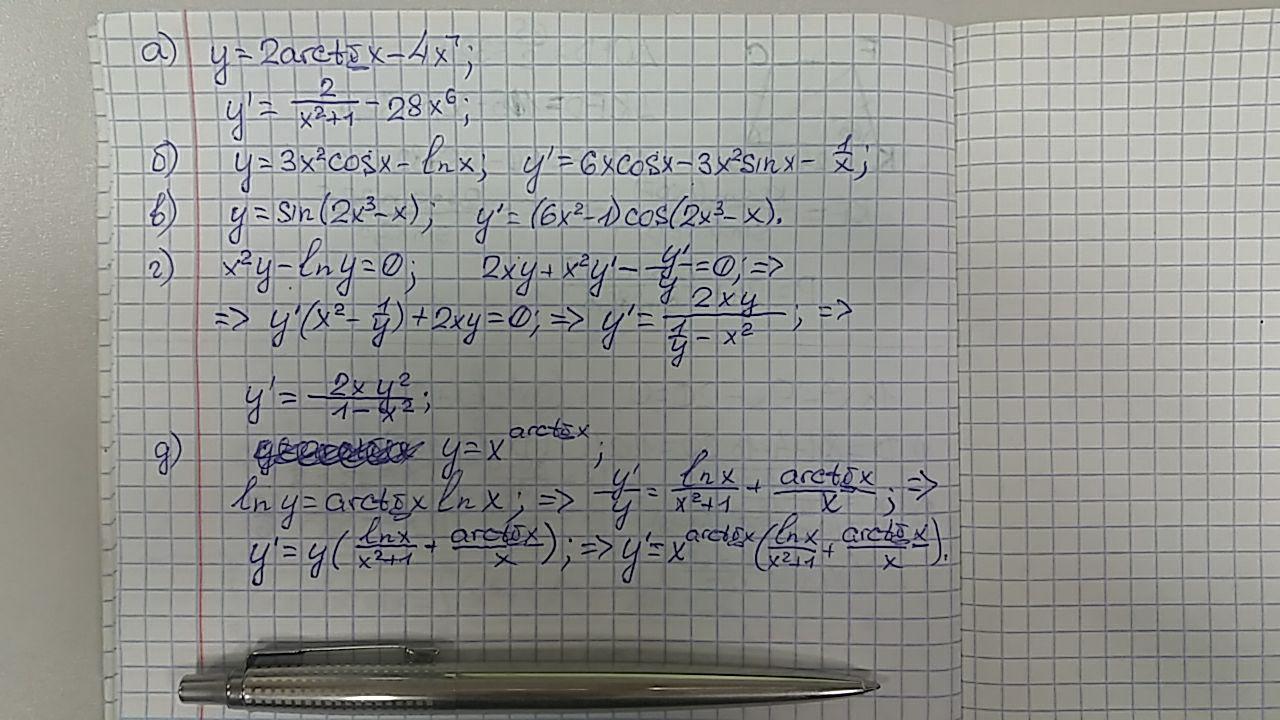 а) y = 2arctg x - 4x⁷;
y' = 2/(x²+1) - 28x⁶;
б) y = 3x²cosx - lnx; y' = 6xcosx - 3x²sinx - 1/x;
в) y = sin(2x³-x); y' = (6x²-1)cos(2x³-x).
г) x²y - lny = 0; 2xy + x²y' - y'/y = 0; =>
=> y'(x² - 1/y) + 2xy = 0; => y' = 2xy/(1/y - x²); =>
y' = 2xy²/(1-x²);
д) y = x^(arctg x);
lny = arctg x lnx; => y'/y = lnx/(x²+1) + arctg x/x; =>
y' = y(lnx/(x²+1) + arctg x/x); => y' = x^(arctg x)(lnx/(x²+1) + arctg x/x).